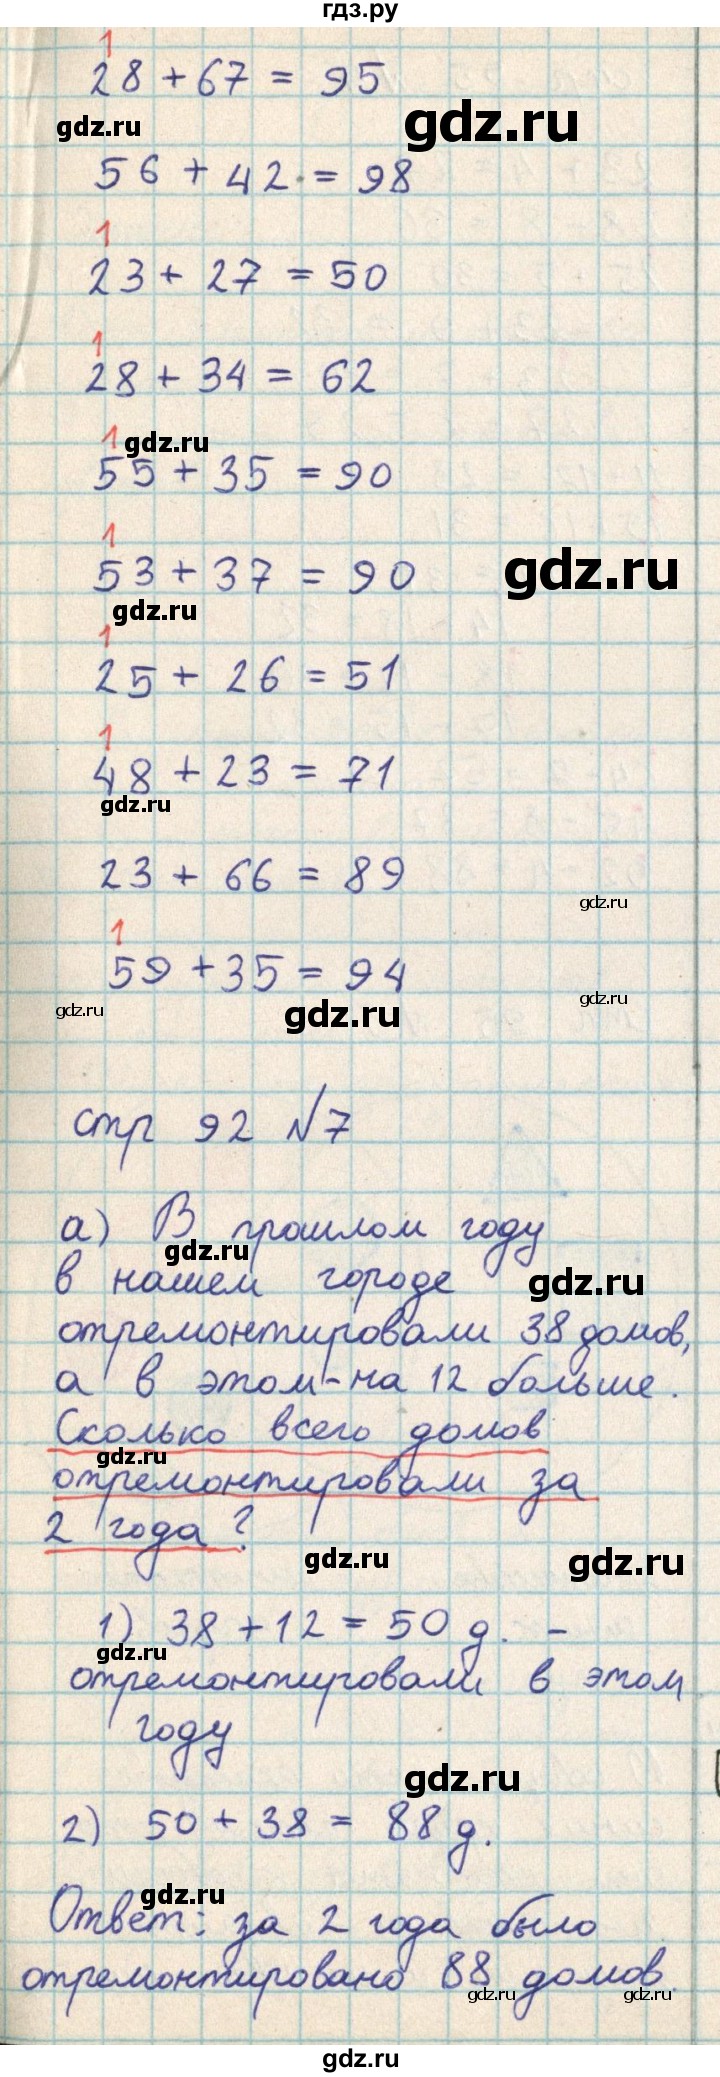 гдз.ру
1
28 + 67 = 95
gdz.ru
gdz.ru
56 + 42 = 98
1
23 + 27 = 50
1
28 + 34 = 62
1
gdz.ru
55 + 35 = 90
1
53 + 37 = 90
gdz.ru
gdz.ru
1
25 + 26 = 51
1
48 + 23 = 71
gdz.ru
23 + 66 = 89
gdz.ru
1
59 + 35 = 94
gdz.ru
gdz.ru
gdz.ru
стр 92 №7
а) В прошлом году
gdz.ru
в нашем городе
gdz.ru
отремонтировали 38 домов,
а в этом - на 12 больше.
Сколько всего домов
gdz.ru
отремонтировали за
2 года?
gdz.ru
gdz.ru
1) 38 + 12 = 50 д. -
gdz.ru
отремонтировали в этом
году
gdz.ru
2) 50 + 38 = 88 д.
gdz.ru
Ответ: за 2 года было
отремонтировано 88 домов.
gdz.ru
gdz.ru
gdz.ru